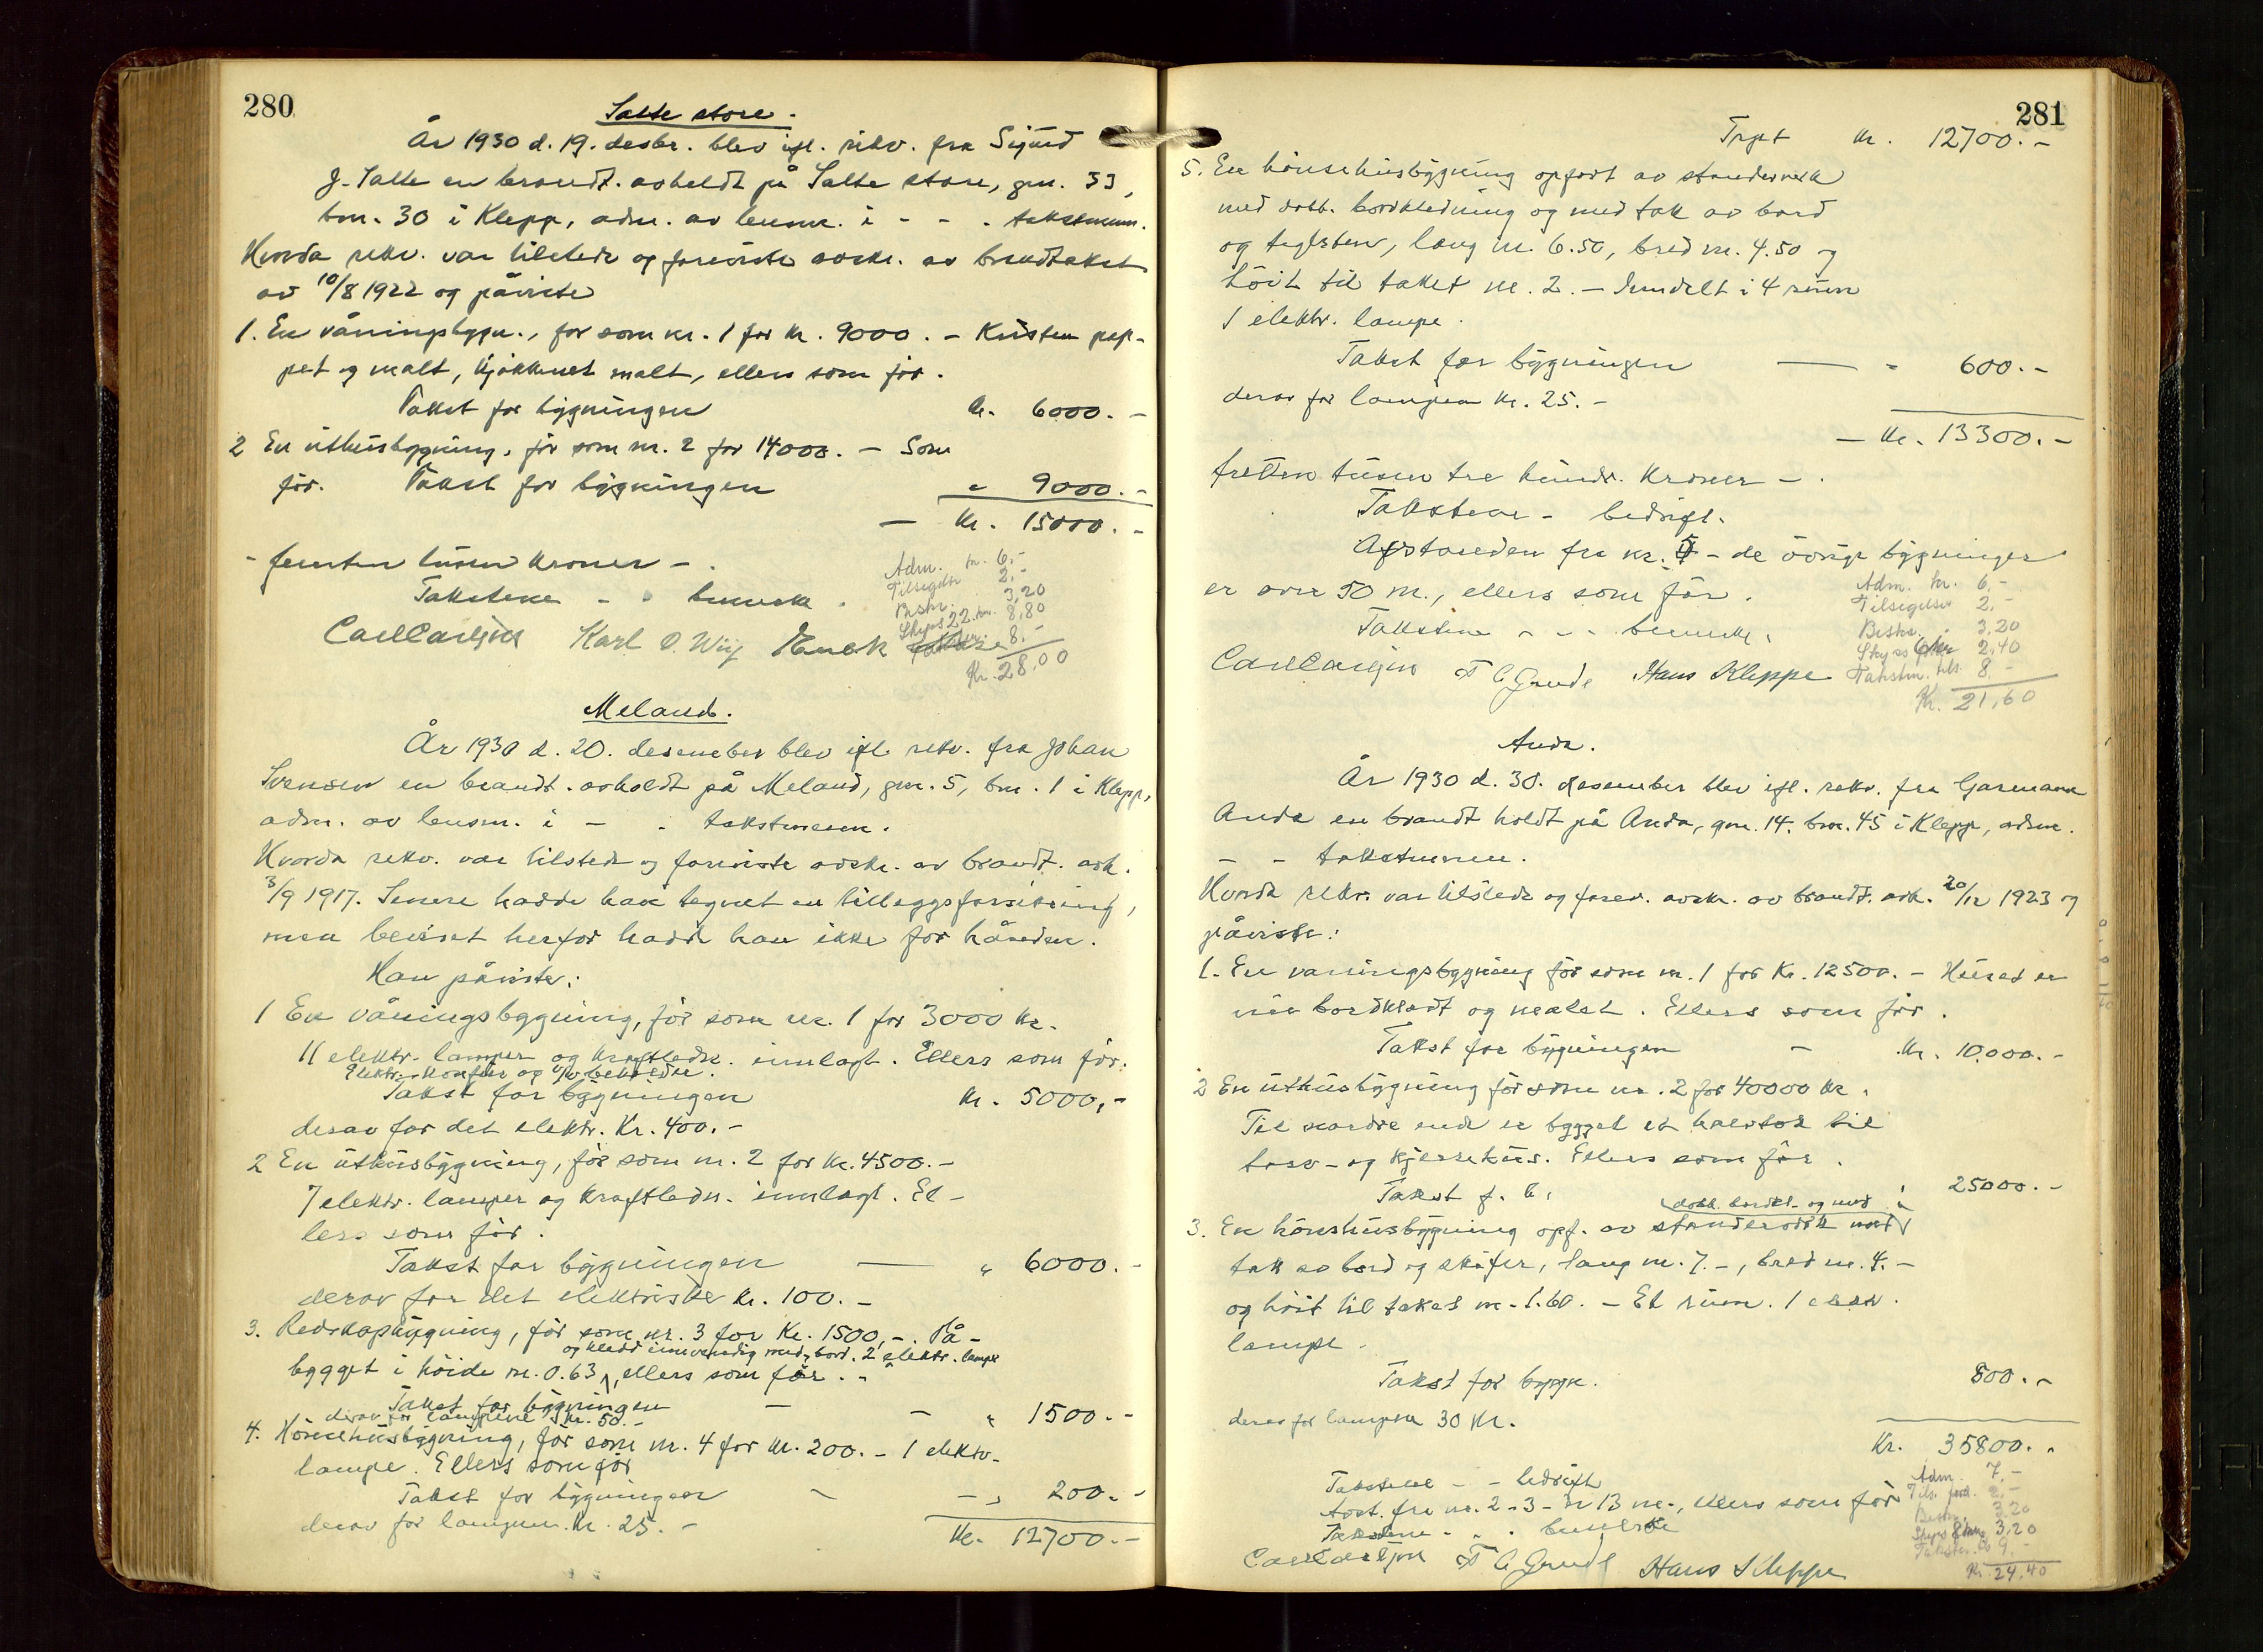 280
Salte store.
År 1930 d. 19. desbr. blev ifl. rekv. fra Sigurd
J. Salte en brandt. avholdt på Salte store, gnr. 33,
bnr. 30 i Klepp, adm. av lensm. i - - - takstmenn.
Hvorda rekv. var tilstede og foreviste avskr. av brandtakst
av 10/8 1922 og påviste
1. En våningsbygn., før som nr. 1 for kr. 9000. - Kvisten pap-
pet og malt, kjøkkenet malt, ellers som før.
Takst for bygningen kr. 6000. -
2 En uthusbygning, før som nr. 2 for 14000. - Som
før. Takst for bygningen " 9000. -
- Kr. 15000. -
- femten tusen kroner -.
Takstene - - bemerk.
Adm. kr. 6,-
Tilsigelse 2,-
Beskr. 3,20
Skyss 22 km. 8,80
8,-
Kr. 28,00
Carl Carlsen Karl O. Wiig
Meland.
År 1930 d. 20. desember blev ifl. rekv. fra Johan
Svensen en brandt. avholdt på Meland, gnr. 5, bnr. 1 i Klepp,
adm. av lensm. i - - takstmenn.
Hvorda rekv. var tilstede og foreviste avskr. av brandt. avh.
3/9 1917. Senere hadde han tegnet en tilleggsforsikring,
men beviset herfor hadde han ikke for hånden.
Han påviste:
1 En våningsbygning, før som nr. 1 for 3000 kr.
11 elektr. lamper og kraftledn. innlagt. Ellers som før.
Elektr. komfur og v/v beholder.
Takst for bygningen kr. 5000,-
derav for det elektr. Kr. 400.-
2 En uthusbygning, før som nr. 2 for kr. 4500.-
7 elektr. lamper og kraftledn. innlagt. El-
lers som før.
Takst for bygningen — " 6000. -
derav for det elektriske kr. 100. -
3. Redskapsbygning, før som nr. 3 for Kr. 1500,-. På-
og kledd innvendig med bord. 2 elektr. lamper
bygget i høide m. 0.63, ellers som før. -
Takst for bygningen - - " 1500. -
derav for lampene kr. 50.-
4. Hønsehusbygning, før som nr. 4 for kr. 200. - 1 elektr.
lampe. Ellers som før
Takst for bygningen - - " 200. -
derav for lampen kr. 25. -
Kr. 12700. -
281
Trpt kr. 12700. -
5. En hønsehusbygning opført av standerverk
med dobb. bordkledning og med tak av bord
og teglsten, lang m. 6.50, bred m. 4.50 og
høit til taket m. 2. - Inndelt i 4 rum
1 elektr. lampe.
Takst for bygningen — " 600. -
derav for lampen kr. 25. -
- Kr. 13300. -
tretten tusen tre hundr. kroner -.
Takstene - bedrift.
Afstanden fra nr. 5 - de øvrige bygninger
er over 50 m., ellers som før.
Takstene - - - bemerk.
Adm. kr. 6,-
Tilsigelse 2,-
Beskr. 3,20
Skyss 6 km 2,40
Takstm. tils. 8 -
Kr. 21,60
Carl Carlsen T C Grude Hans Kleppe
Anda.
År 1930 d. 30. desember blev ifl. rekv. fra Garmann
Anda en brandt holdt på Anda, gnr. 14, bnr. 45 i Klepp, adm.
- - takstmenn.
Hvorda rekv. var tilstede og forev. avskr. av brandt. avh. 20/12 1923 og
påviste:
1. En våningsbygning før som nr. 1 for Kr. 12500. - Huset er
nu bordkledt og malet. Ellers som før.
Takst for bygningen - kr. 10.000. -
2 En uthusbygning før som nr. 2 for 40000 kr.
Til nordre ende er bygget et halvtak til
torv- og kjerrehus. Ellers som før.
Takst f. b. " 25000. -
3. En hønshusbygning opf. av standerverk med
dobb. bordkl. og med
tak av bord og skifer, lang m. 7. -, bred m. 4. -
og høit til taket m. 1.60. - Et rum. 1 elektr.
lampe.
Takst for bygn. 800. -
derav for lampen 30 kr.
Kr. 35800. -
Takstene - - bedrift
Avst. fra nr. 2 - 3 - er 13 m., ellers som før
Takstene - - - bemerke
Adm. 7,-
2,-
Beskr. 3,20
Skyss 8 km 3,20
9.-
Kr. 24,40
Carl Carlsen T C Grude Hans Kleppe